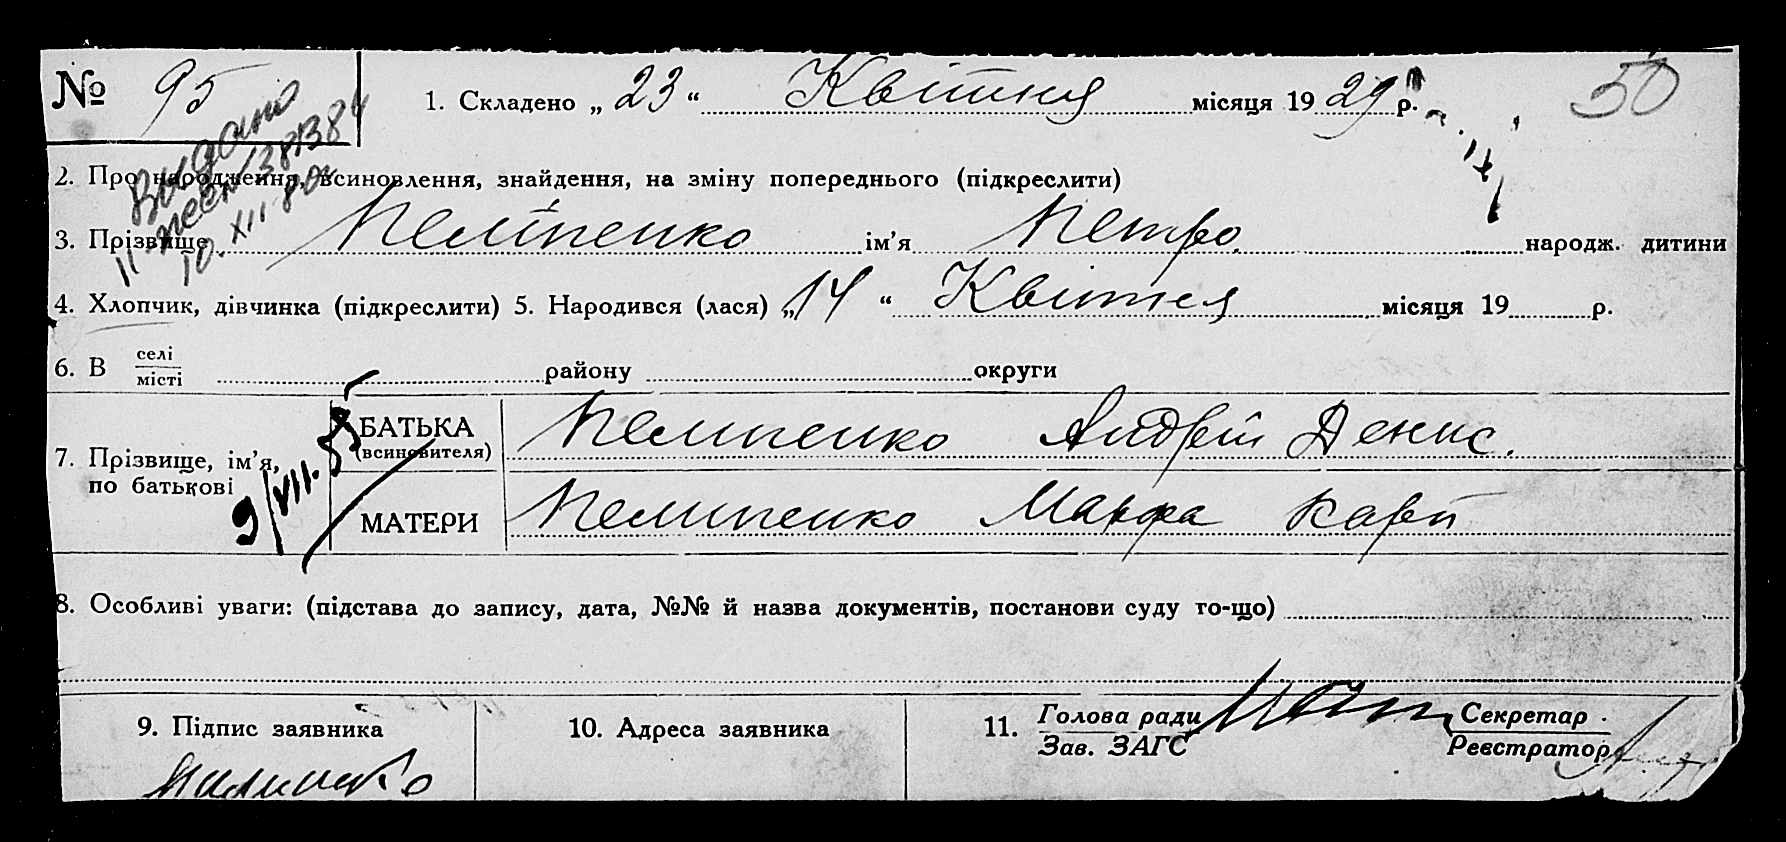 № 95
1. Складено „ 23 “ Квітня місяця 1929 р.
50
Видано
10. XII 80
2. Про народження, всиновлення, знайдення, на зміну попереднього (підкреслити)
3. Прізвище Пеліпенко ім’я Петро народж. дитини
4. Хлопчик, дівчинка (підкреслити) 5. Народився (лася) „ 14 “ Квітня місяця 19 р.
6. В селі
місті
району округи
7. Прізвище, ім’я,
по батькові
9/VII.
БАТЬКА
(всиновителя)
Пелипенко Андрій Денис.
МАТЕРИ
Пелипенко Марфа Карп
8. Особливі уваги: (підстава до запису, дата, №№ й назва документів, постанови суду то-що)
9. Підпис заявника
10. Адреса заявника
11. Голова ради
Зав. ЗАГС
Секретар
Реєстратор